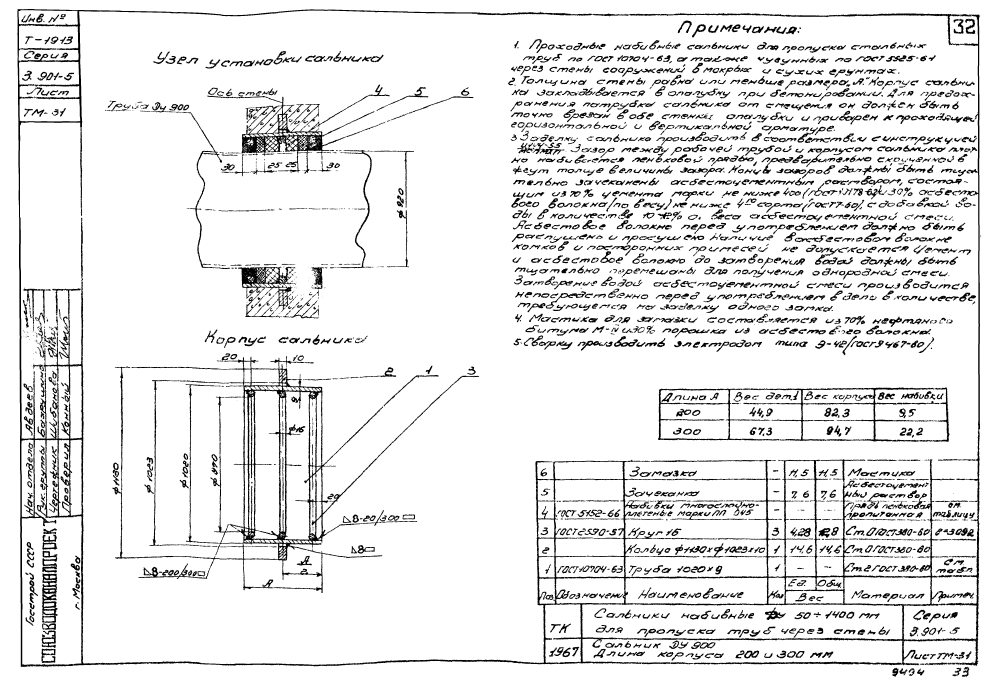 Инв. №
Т-1913
Серия
3.901-5
Лист
ТМ-31
Узел установки сальника
Ось стены
Труба Ду 900
4
5
6
30
25
25
30
ф 920
Корпус сальника
20
10
2
1
3
ф 1130
ф 1023
ф 1020
ф 970
9
ф16
20
8-20/300
8
8-200/300
А
2
А
Примечания:
32
1. Проходные набивные сальники для пропуска стальных
труб по ГОСТ 10704-63, а также чугунных по ГОСТ 5525-61
через стены сооружений в мокрых и сухих грунтах.
2. Толщина стены равна или меньше размера „А". Корпус сальни-
ка закладывается в опалубку при бетонировании. Для предох-
ранения патрубка сальника от смещения он должен быть
точно врезан в обе стенки опалубки и приварен к проходящей
горизонтальной и вертикальной арматуре.
3. Заделку сальника производить в соответствии с инструкцией
Зазор между рабочей трубой и корпусом сальника плот-
но набивается пеньковой прядью, предварительно скрученной в
жгут толще величины зазора. Концы зазоров должны быть тща-
тельно зачеканены асбестоцементным раствором, состоя-
щим из 70% цемента марки не ниже 400 и 30% асбесто-
вого волокна (по весу) не ниже 4го сорта (ГОСТ 7-60), с добавкой во-
ды в количестве 10-12% от веса асбестоцементной смеси.
Асбестовое волокно перед употреблением должно быть
распушено и просушено. Наличие в асбестовом волокне
комков и посторонних примесей не допускается. Цемент
и асбестовое волокно до затворения водой должны быть
тщательно перемешаны для получения однородной смеси.
Затворение водой асбестоцементной смеси производится
непосредственно перед употреблением в дело в количестве,
требующемся на заделку одного замка.
4. Мастика для замазки составляется из 70% нефтяного
битума М-IV и 30% порошка из асбестового волокна.
5. Сварку производить электродом типа Э-42 (ГОСТ 9467-60).
Длина А Вес дет.1 Вес корпуса Вес набивки
200 44,9 82,3 9,5
300 67,3 94,7 22,2
6 Замазка - 11,5 11,5 Мастика
5 Зачеканка - 7,6 7,6 Асбестоцемент-ный раствор
4 ГОСТ 5152-66 Набивки многослойно-плетеные марки ПП - Прядь пеньковая пропитанная см. таблицу
3 ГОСТ 2590-57 Круг 16 3 4,28 12,8 Ст.0 ГОСТ 380-60 ℓ=3092
2 Кольцо ф1130×ф1023×10 1 14,6 14,6 Ст.0 ГОСТ 380-60
1 ГОСТ 10704-63 Труба 1020×9 1 - - Ст.2 ГОСТ 380-60 см. табл.
Поз. Обозначение Наименование Кол Ед. Общ. Вес Материал Примеч.
ТК
Сальники набивные Ду 50÷1400 мм
для пропуска труб через стены
Серия
3.901-5
1967
Сальник Ду 900
Длина корпуса 200 и 300 мм
Лист ТМ-31
9494 33
Нач. отдела Авдеев
Рук. группы
Чертежник Шибанова
Проверил
Госстрой СССР
СОЮЗВОДОКАНАЛПРОЕКТ
г. Москва